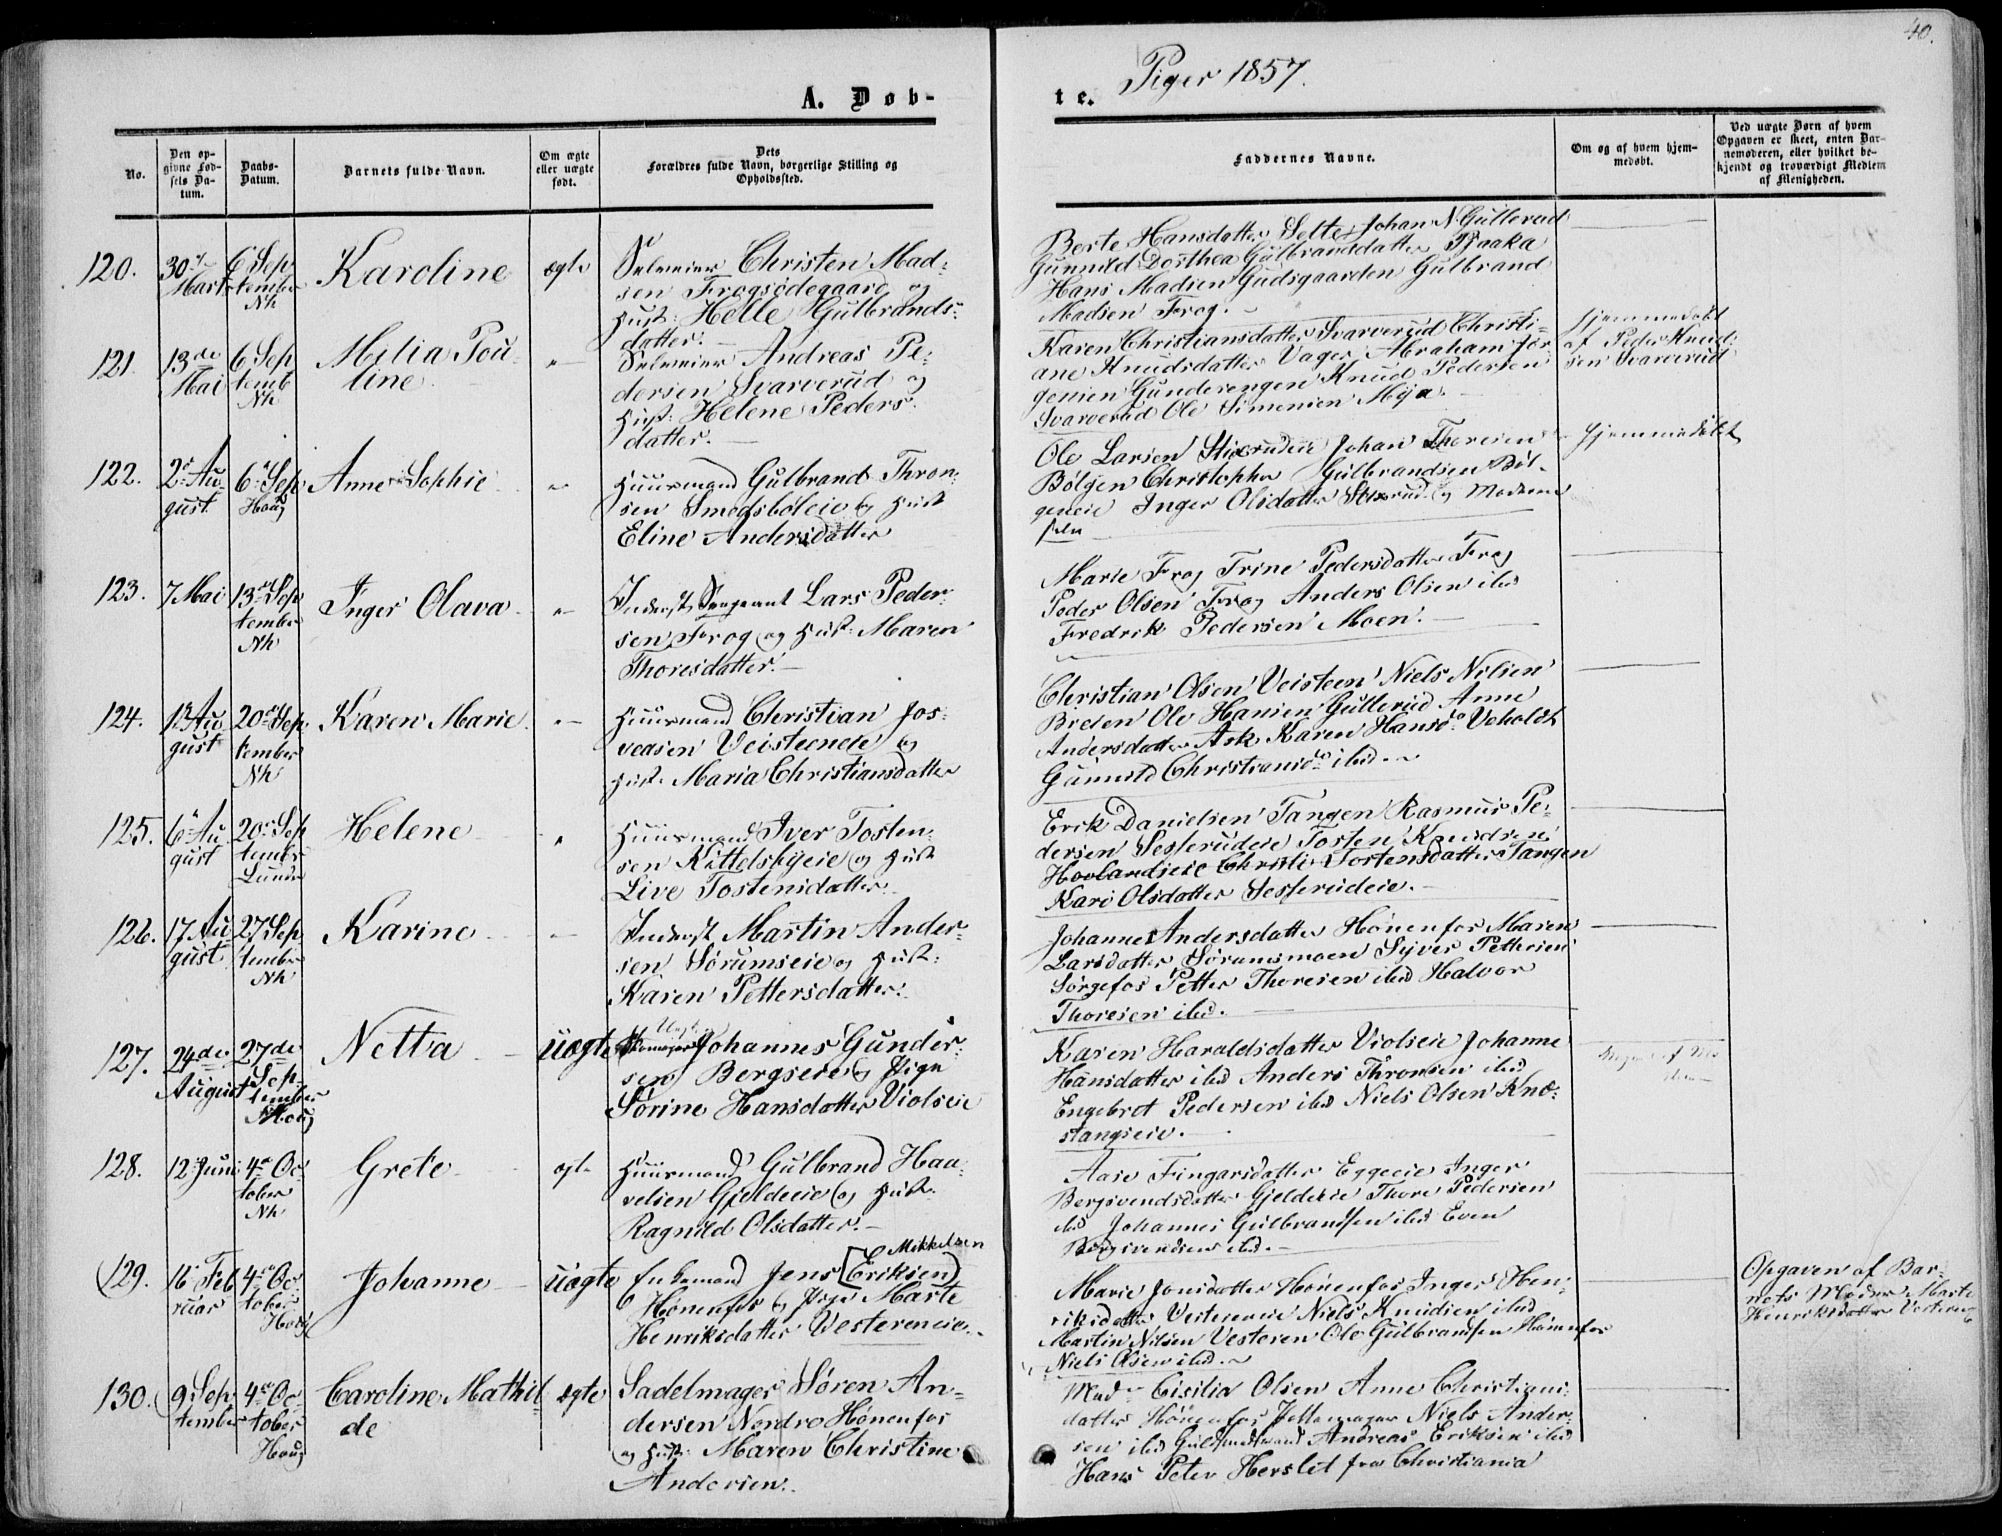 40.
A. Døb-
te.
Piger 1857.
No.
Den op-
givne Fød-
sels Da-
tum.
Daabs-
Datum.
Barnets fulde Navn.
Om ægte
eller uægte
født.
Dets
Forældres fulde Navn, borgerlige Stilling og
Opholdssted.
Faddernes Navne.
Om og af hvem hjem-
medøbt.
Ved uægte Børn af hvem
Opgaven er skeet, enten Bar-
nemoderen, eller hvilket be-
kjendt og troværdigt Medlem
af Menigheden.
120.
30
Marts
6 Sep
tember
Nh
Karoline
ægte
Selveier Christen Mad-
sen Frogsødegaard og
Hust: Helle Gulbrands-
datter.
Berte Hansdatter Sette Johan N. Gullerud
Gunnild Dorthea Gulbrandsdatter Braaka
Hans Madsen Gudsgaarden Gulbrand
Madsen Frog.
121.
13de
Mai
6 Sep
temb
Nh
Milia Pou
line
Selveier Andreas Pe-
dersen Svarverud og
Hust: Helene Peders-
datter.
Karen Christiansdatter Svarverud Christi-
ane Knudsdatter Vager Abraham Jør-
gensen Gunderengen Knud Pedersen
Svarverud Ole Simensen Mya.
Hjemmedøbt
af Peder Knud-
sen Svarverud
122.
2 Au
gust
6 Sep
Houg
Anne Sophie
Huusmand Gulbrand Thron-
sen Smedsbøleie og Hust
Eline Andersdatter
Ole Larsen Stixrudeie Johan Thoresen
Bølgen Christopher Gulbrandsen Bøl-
geneie Inger Olsdatter Stixrud og Moderen
selv
Hjemmedøbt
123.
7 Mai
13 Sep
tember
Nh
Inger Olava
Inderst Sergeant Lars Peder-
sen Frog og Hust: Maren
Thoresdatter.
Marie Frog Trine Pedersdatter Frog
Peder Olsen Frog Anders Olsen ibd
Fredrik Pedersen Moen.
124.
13 Au
gust
20 Sep
tember
Nh
Karen Marie
Huusmand Christian Jos-
vasen Veisteeneie og
Hust: Maria Christiansdatter
Christian Olsen Veisteen Niels Nilsen
Breden Ole Hansen Gullerud Anne
Andersdatter Ask Karen Hansd. Veholdt
Gunnild Christiansd. ibd.
125.
6 Au
gust
20 Sep
tember
Lunder
Helene
Huusmand Iver Tosten-
sen Kittelsbyeie og Hust
Live Tostensdatter
Erik Danielsen Tangen Rasmus Pe-
dersen Sesserudeie Tosten Knudsen
Hovlandseie Christi Tostensdatter Tangen
Kari Olsdatter Sesserudeie.
126.
17 Au
gust
27 Sep
tember
Nh
Karine
Inderst Martin Ander-
sen Sørumseie og Hust:
Karen Pettersdatter.
Johanne Andersdatter Hønenfos Maren
Larsdatter Sørumsmoen Syver Pettersen
Sørgefos Petter Thoresen ibd Halvor
Thoresen ibd.
127.
24de
August
27de
Sep
tember
Houg
Netta
uægte
Johannes Gunder-
sen Bergseie og Pige
Sørine Hansdatter Violseie
Karen Haraldsdatter Violseie Johanne
Hansdatter ibd Anders Thronsen ibd
Engebret Pedersen ibd Niels Olsen Knæ-
stangseie.
128.
12 Juni
4 Oc
tober
Nh
Grete
ægte
Huusmand Gulbrand Haa-
velsen Gjeldeie og Hust:
Ragnild Olsdatter.
Aase Fingarsdatter Eggeeie Inger
Bergsvendsdatter Gjeldeie Thore Pedersen
ibd Johannes Gulbrandsen ibd Even
Bergsvendsen ibd.
129.
16 Feb
ruar
4 Oc
tober
Houg
Johanne
uægte
Mikkelsen
Enkemand Jens [Eriksen]
Hønenfos og Pige Marte
Henriksdatter Vesterneie.
Marie Jonsdatter Hønenfos Inger Hen-
riksdatter Vesterneie Niels Knudsen ibd
Martin Nilsen Vesteren Ole Gulbrandsen Hønenfos
Niels Olsen ibd.
Opgaven af Bar-
nets Moder Marte
Henriksdatter Vesteren
130.
9 Sep
tember
4 Oc
tober
Houg
Caroline Mathil
de
ægte
Sadelmager Søren An-
dersen Nordre Hønenfos
og Hust: Maren Christine
Andersen.
Mad. Cisilia Olsen Anne Christians-
datter Hønenfos Niels Ander-
sen ibd Andreas Eriksen ibd
Hans Peter Herslet fra Christiania